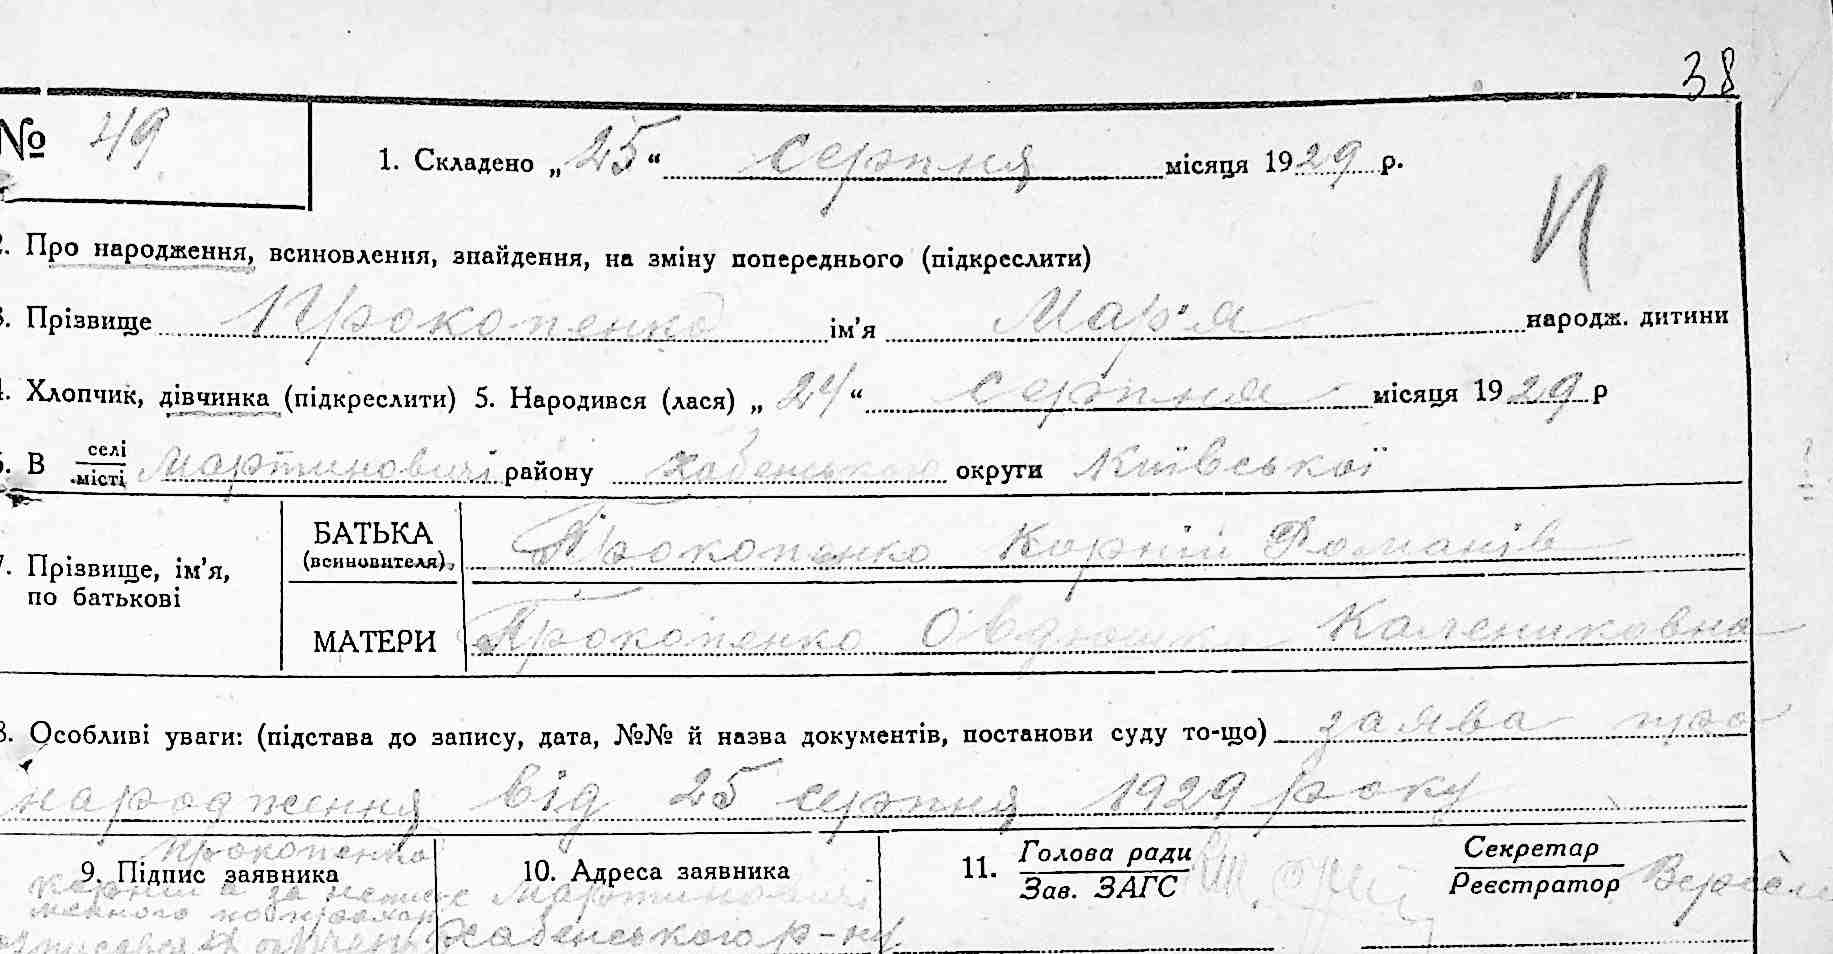 38
№ 49
1. Складено „25“ серпня місяця 1929 р.
П
2. Про народження, всиновлення, знайдення, на зміну попереднього (підкреслити)
3. Прізвище Прокопенко ім’я Мар’я народж. дитини
4. Хлопчик, дівчинка (підкреслити) 5. Народився (лася) „24“ серпня місяця 1929 р
6. В селі/місті Мартиновичі району Хабенського округи Київської
7. Прізвище, ім’я, по батькові
БАТЬКА (всиновителя) Прокопенко Корній Романів
МАТЕРИ Прокопенко Овдюшка Калениковна
8. Особливі уваги: (підстава до запису, дата, №№ й назва документів, постанови суду то-що) заява про
народження від 25 серпня 1929 року
9. Підпис заявника
Прокопенко
Корній а за
10. Адреса заявника
Мартиновичі
Хабенського р-ну
11. Голова ради
Зав. ЗАГС
Секретар
Реєстратор